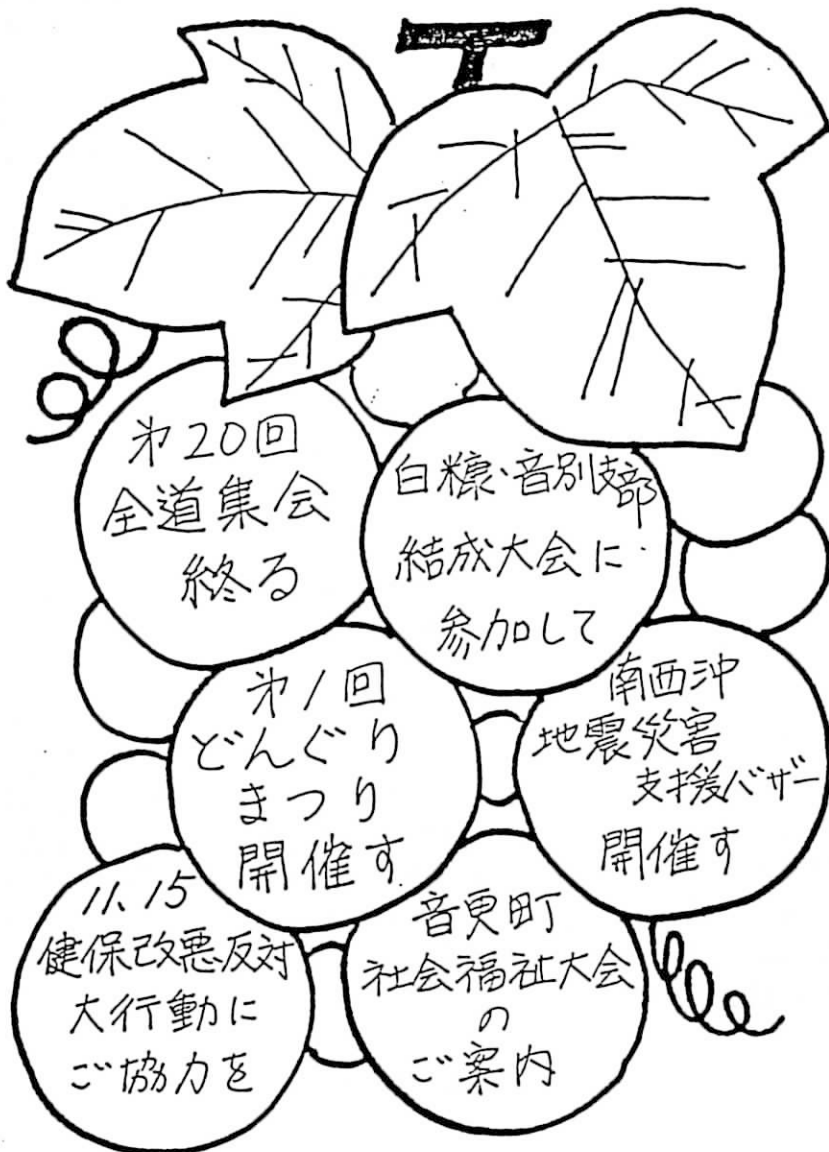 㐧20回
全道集会
終る
白糠・音別支部
結成大会に
参加して
㐧1回
どんぐり
まつり
開催す
南西沖
地震災害
支援バザー
開催す
11.15
健保改悪反対
大行動に
ご協力を
音更町
社会福祉大会
の
ご案内